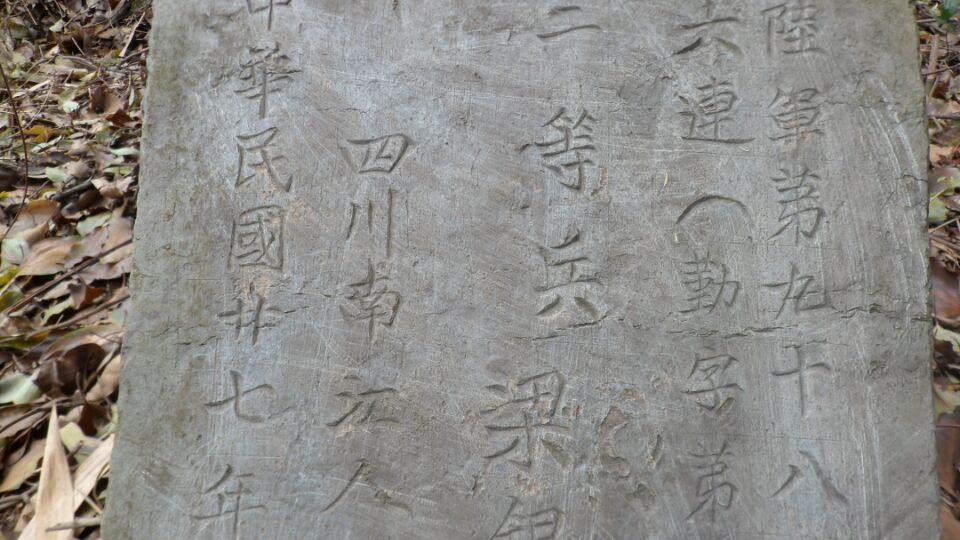 陸軍第九十八
六連（勤字第
二等兵梁
四川南江人
中華民國廿七年